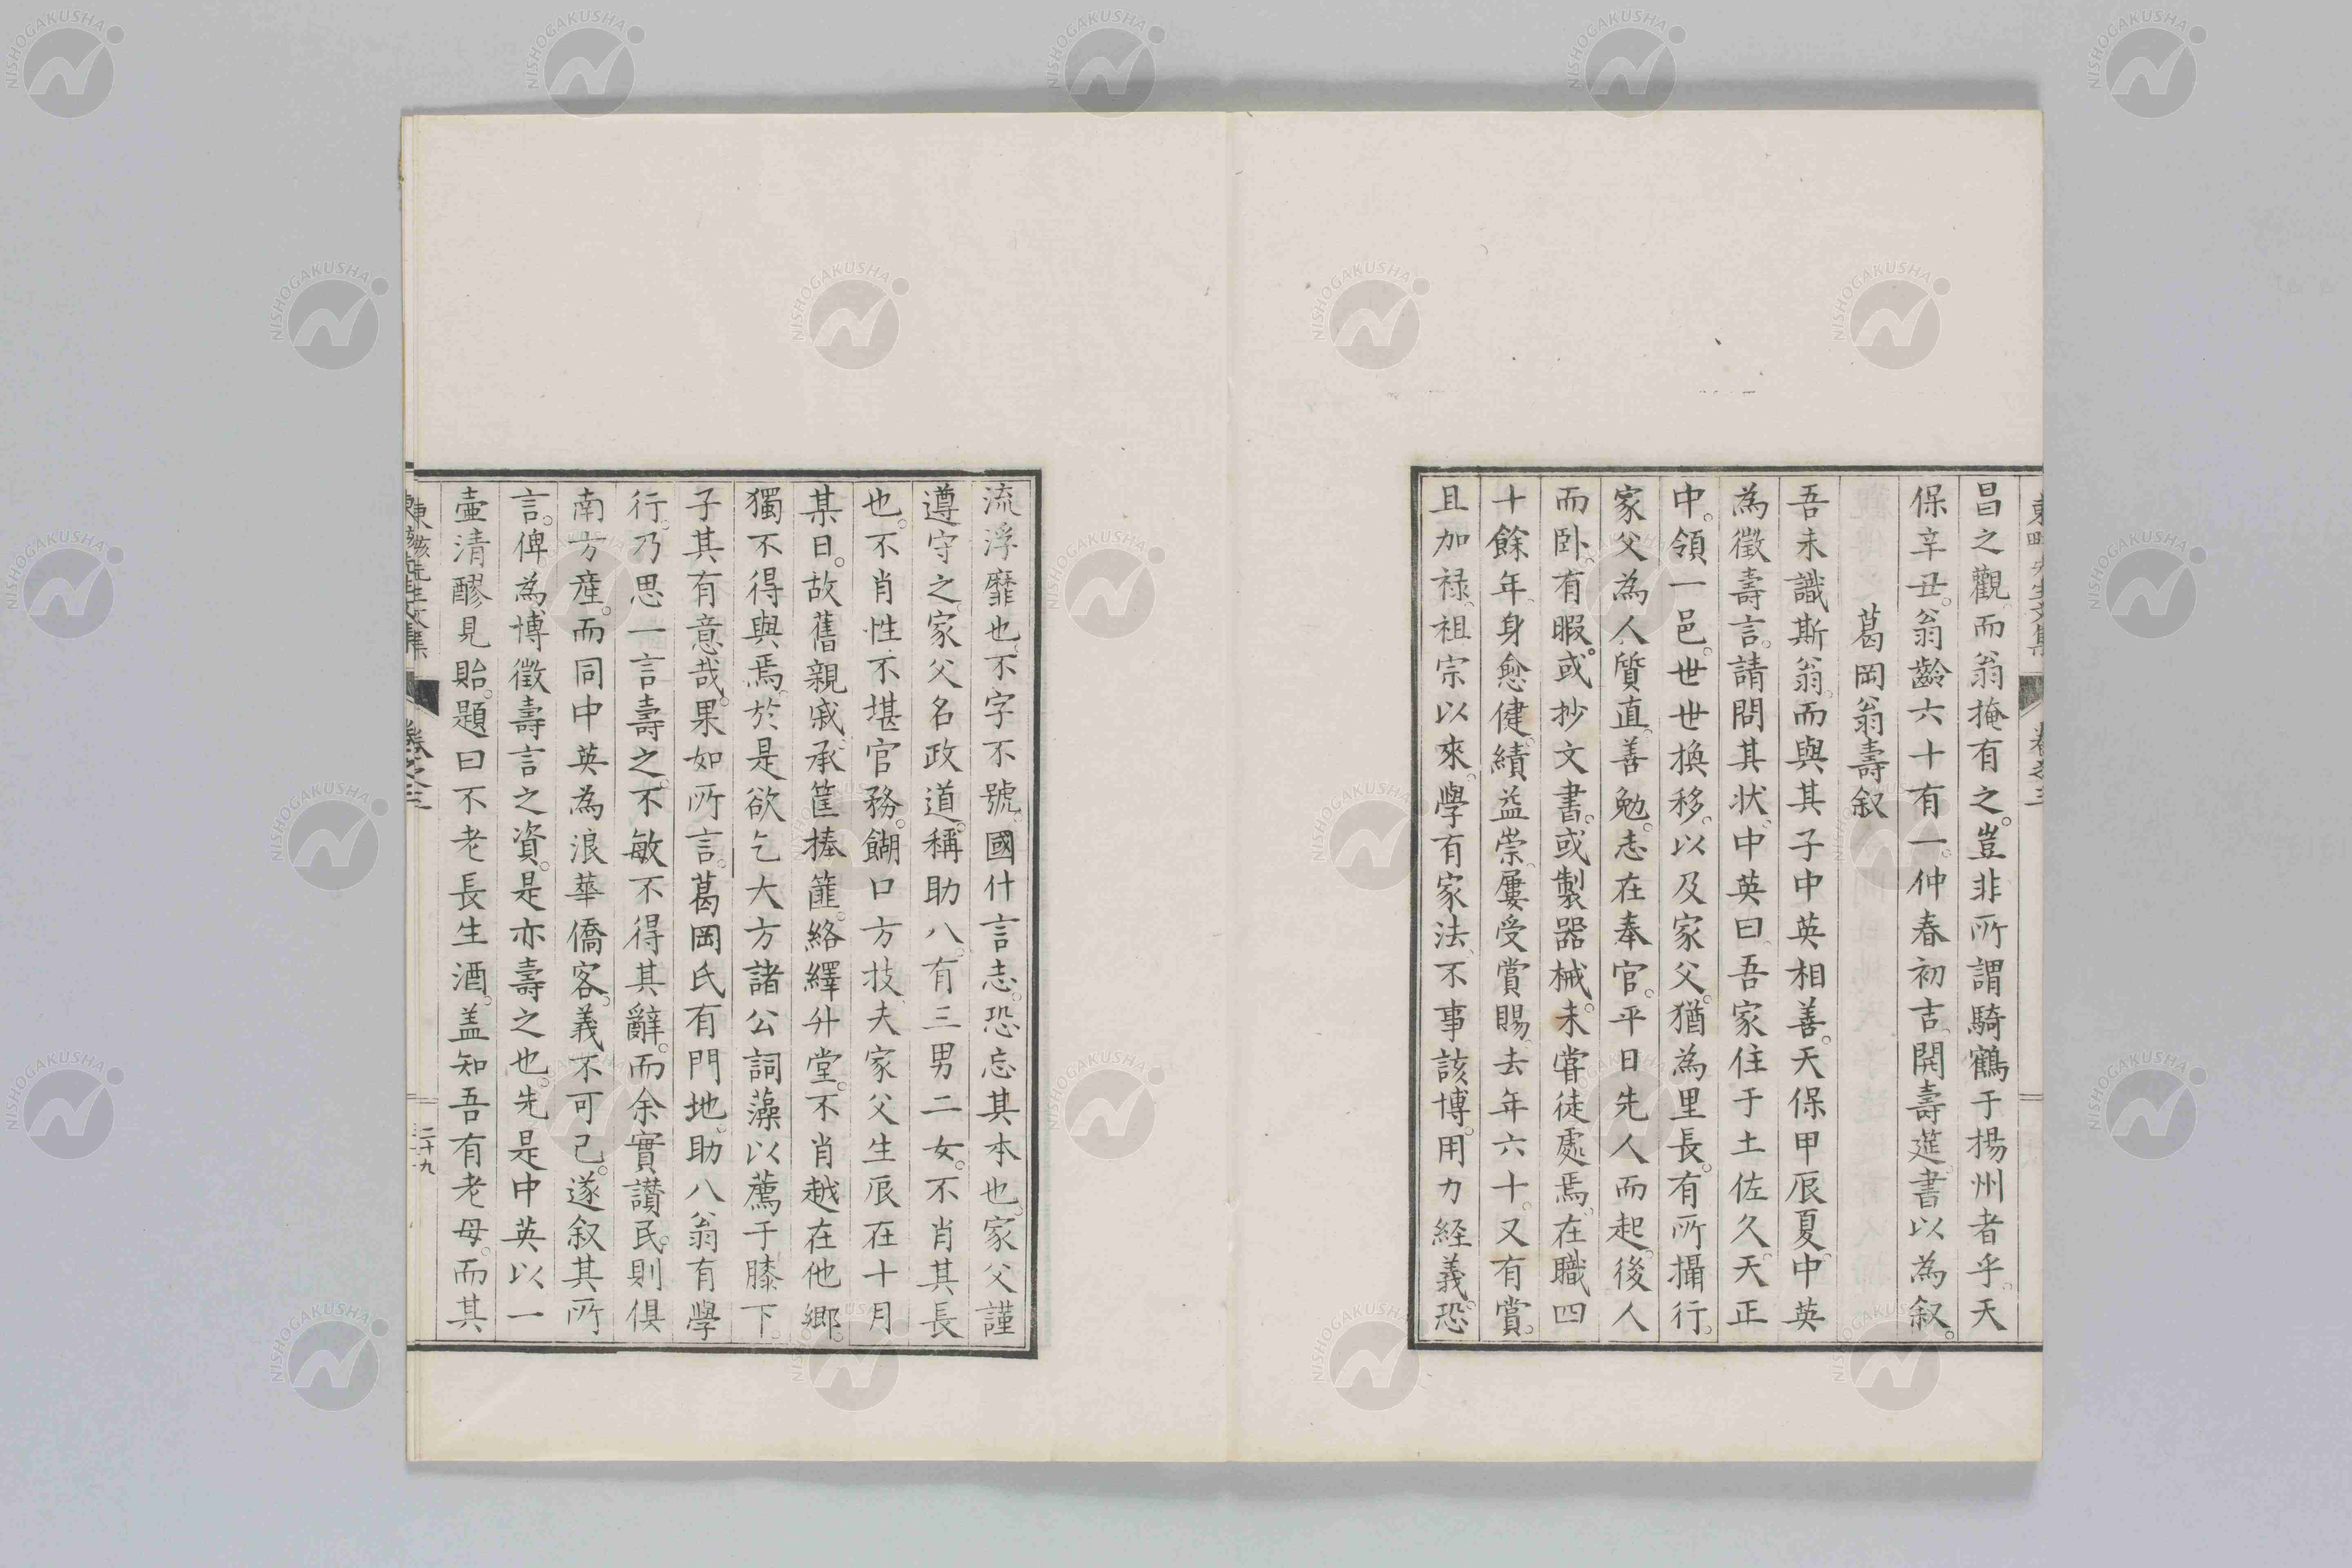 昌之觀而翁掩有之。豈非所謂騎鶴于揚州者乎。天
保辛丑。翁齡六十有一。仲春初吉。開壽莚。書以為叙。
葛岡翁壽叙
吾未識斯翁。而與其子中英相善。天保甲辰夏。中英
為徵壽言。請問其状。中英曰。吾家住于土佐久天。天正
中。領一邑。世世換移。以及家父。猶為里長。有所攝行。
家父為人質直。善勉。志在奉官。平日先人而起。後人
而卧。有暇。或抄文書。或製器械。未嘗徒處焉。在職四
十餘年。身愈健。績益崇。屢受賞賜。去年六十。又有賞。
且加祿。祖宗以來。學有家法。不事該博。用力経義。恐
流浮靡也。不字不號。國什言志。恐忘其本也。家父謹
遵守之。家父名政道。稱助八。有三男二女。不肖其長
也。不肖性不堪官務。餬口方技。夫家父生辰在十月
某日。故舊親戚。承筐捧篚。絡繹升堂。不肖越在他鄉。
獨不得與焉。於是欲乞大方諸公詞藻以薦于膝下。
子其有意哉。果如所言。葛岡氏有門地。助八翁有學
行。乃思一言壽之。不敏不得其辭。而余實讃民。則俱
南方産。而同中英為浪華僑客。義不可已。遂叙其所
言。俾為博徵壽言之資。是亦壽之也。先是中英以一
壷清醪見貽。題曰不老長生酒。盖知吾有老母。而其
卷之三
二十九
NISHOGAKUSHA